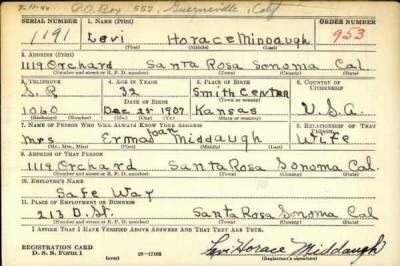 7-11-44 P.O. Box 557, Guerneville, Calif
SERIAL NUMBER 1. NAME (Print) ORDER NUMBER
1191 Levi Horace Middaugh 953
(First) (Middle) (Last)
2. ADDRESS (Print)
1119 Orchard Santa Rosa Sonoma Cal.
(Number and street or R. F. D. number) (Town) (County) (State)
3. TELEPHONE 4. AGE IN YEARS 5. PLACE OF BIRTH 6. COUNTRY OF CITIZENSHIP
S.R. 32 Smith Center
DATE OF BIRTH (Town or county)
1060 Dec 25 1907 Kansas U.S.A.
(Exchange) (Number) (Mo.) (Day) (Yr.) (State or country)
7. NAME OF PERSON WHO WILL ALWAYS KNOW YOUR ADDRESS 8. RELATIONSHIP OF THAT PERSON
Mrs Erma Joan Middaugh Wife
(Mr., Mrs., Miss) (First) (Middle) (Last)
9. ADDRESS OF THAT PERSON
1119 Orchard Santa Rosa Sonoma Cal.
(Number and street or R. F. D. number) (Town) (County) (State)
10. EMPLOYER'S NAME
Safe Way
11. PLACE OF EMPLOYMENT OR BUSINESS
213 D. St. Santa Rosa Sonoma Cal
(Number and street or R. F. D. number) (Town) (County) (State)
I AFFIRM THAT I HAVE VERIFIED ABOVE ANSWERS AND THAT THEY ARE TRUE.
REGISTRATION CARD
D. S. S. Form 1 (over) 16-17105 Levi Horace Middaugh
(Registrant's signature)